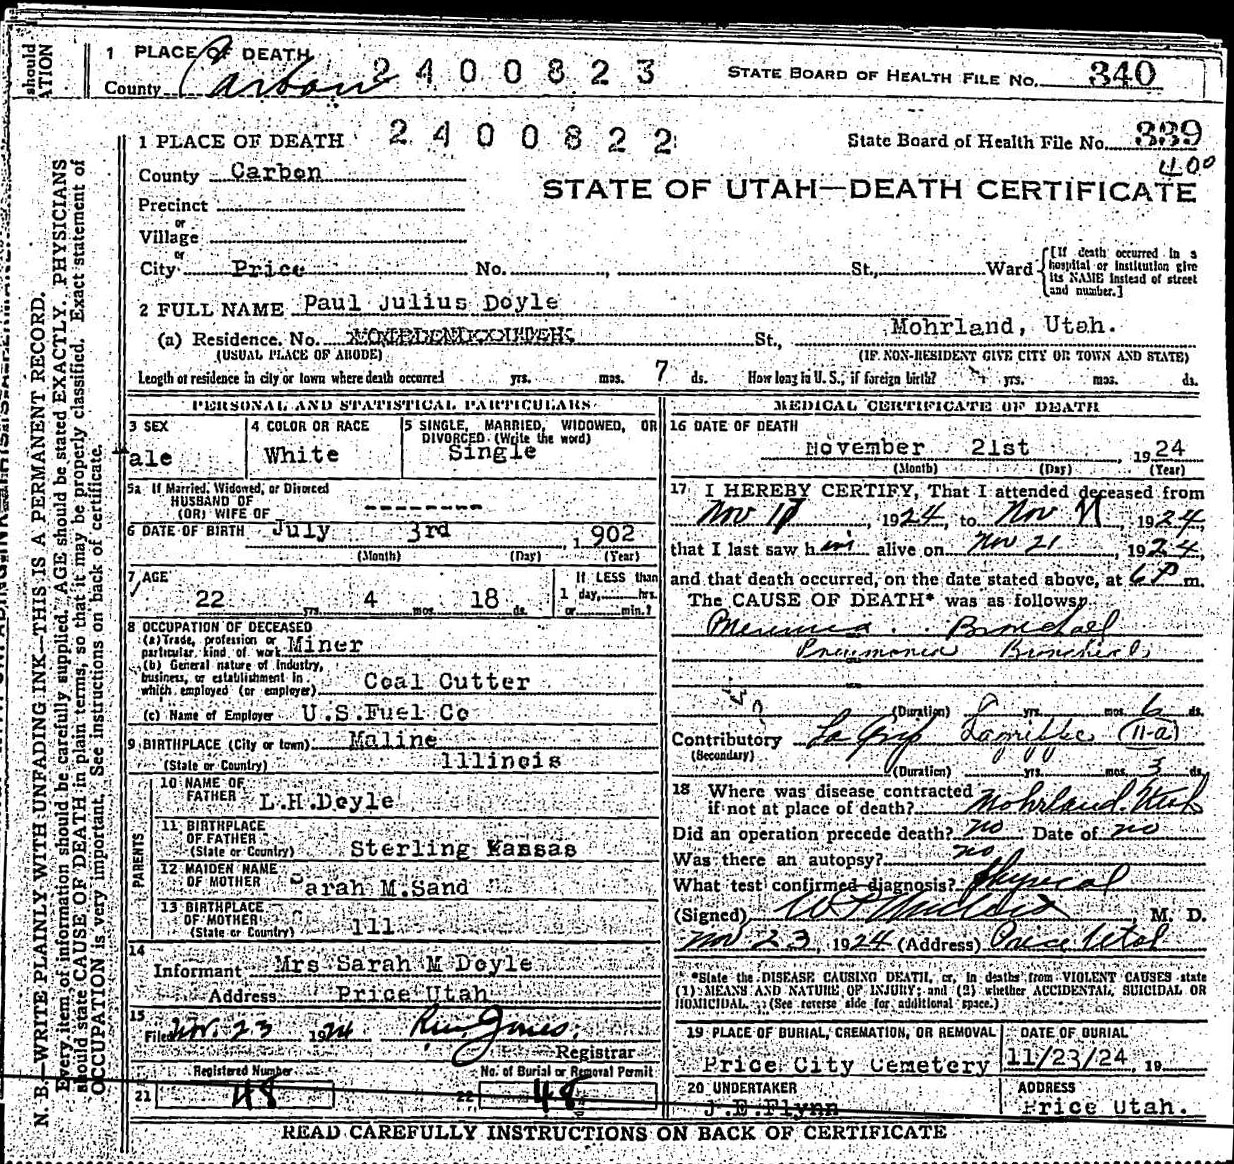 should
ATION
1 PLACE OF DEATH
2400823
STATE BOARD OF HEALTH FILE No. 340
County Carbon
N. B.—WRITE PLAINLY WITH UNFADING INK—THIS IS A PERMANENT RECORD.
Every item of information should be carefully supplied. AGE should be stated EXACTLY. PHYSICIANS
should state CAUSE OF DEATH in plain terms, so that it may be properly classified. Exact statement of
OCCUPATION is very important. See instructions on back of certificate.
1 PLACE OF DEATH 2400822 State Board of Health File No. 339
400
County Carbon
STATE OF UTAH—DEATH CERTIFICATE
Precinct
or
Village
or
City Price No. , St., Ward [If death occurred in a hospital or institution give its NAME instead of street and number.]
2 FULL NAME Paul Julius Doyle
(a) Residence. No. St., Mohrland, Utah.
(USUAL PLACE OF ABODE) (IF NON-RESIDENT GIVE CITY OR TOWN AND STATE)
Length of residence in city or town where death occurred yrs. mos. 7 ds. How long in U. S., if foreign birth? yrs. mos. ds.
PERSONAL AND STATISTICAL PARTICULARS
3 SEX
ale
4 COLOR OR RACE
White
5 SINGLE, MARRIED, WIDOWED, OR
DIVORCED (Write the word)
Single
5a If Married, Widowed, or Divorced
HUSBAND OF
(OR) WIFE OF --------
6 DATE OF BIRTH July 3rd , 1902
(Month) (Day) (Year)
7 AGE
22 yrs. 4 mos. 18 ds.
If LESS than
1 day, hrs.
or min.?
8 OCCUPATION OF DECEASED
(a) Trade, profession or
particular kind of work Miner
(b) General nature of industry,
business, or establishment in
which employed (or employer) Coal Cutter
(c) Name of Employer U.S.Fuel Co
9 BIRTHPLACE (City or town) Maline
(State or Country) Illinois
PARENTS
10 NAME OF
FATHER L.H.Doyle
11 BIRTHPLACE
OF FATHER
(State or Country) Sterling Kansas
12 MAIDEN NAME
OF MOTHER Sarah M.Sand
13 BIRTHPLACE
OF MOTHER
(State or Country) Ill
14
Informant Mrs Sarah M Doyle
Address Price Utah
15
Filed Nov. 23 1924
Registrar
Registered Number
21 48
No. of Burial or Removal Permit
22 48
MEDICAL CERTIFICATE OF DEATH
16 DATE OF DEATH
November 21st , 1924
(Month) (Day) (Year)
17 I HEREBY CERTIFY, That I attended deceased from
Nov , 1924, to Nov , 1924,
that I last saw him alive on Nov 21 , 1924,
and that death occurred, on the date stated above, at 6 P m.
The CAUSE OF DEATH* was as follows:
Pneumonia Bronchial
(Duration) yrs. mos. 6 ds.
Contributory La Grip Lagrippe (11-a)
(Secondary)
(Duration) yrs. mos. 3 ds.
18 Where was disease contracted
if not at place of death? Mohrland. Utah
Did an operation precede death? no Date of no
Was there an autopsy? no
What test confirmed diagnosis? Physical
(Signed) , M. D.
Nov 23, 1924 (Address) Price Utah
*State the DISEASE CAUSING DEATH, or, in deaths from VIOLENT CAUSES state
(1) MEANS AND NATURE OF INJURY; and (2) whether ACCIDENTAL, SUICIDAL OR
HOMICIDAL. (See reverse side for additional space.)
19 PLACE OF BURIAL, CREMATION, OR REMOVAL
Price City Cemetery
DATE OF BURIAL
11/23/24 , 19
20 UNDERTAKER
J.E.Flynn
ADDRESS
Price Utah.
READ CAREFULLY INSTRUCTIONS ON BACK OF CERTIFICATE